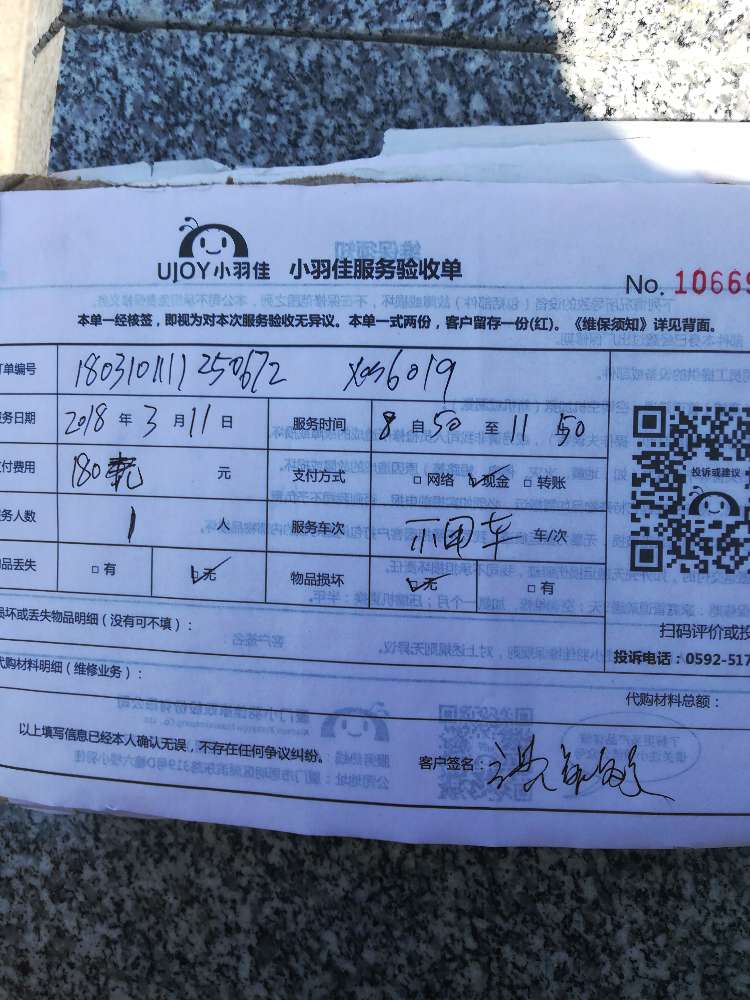 UJOY小羽佳 小羽佳服务验收单
No. 10669
本单一经核签，即视为对本次服务验收无异议。本单一式两份，客户留存一份(红)。《维保须知》详见背面。
单编号 180310111250672 X056019
务日期 2018 年 3 月 11 日 服务时间 8 自 50 至 11 50
付费用 180 元 支付方式 □ 网络 □ 现金 □ 转账
务人数 1 人 服务车次 不用车 车/次
品丢失 □ 有 □ 无 物品损坏 □ 无 □ 有
投诉或建议
损坏或丢失物品明细（没有可不填）：
扫码评价或投
投诉电话：0592-517
代购材料明细（维修业务）：
代购材料总额：
以上填写信息已经本人确认无误，不存在任何争议纠纷。 客户签名：